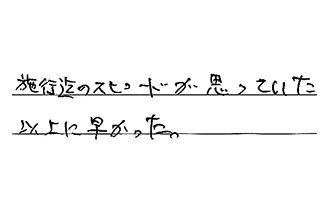 施行迄のスピードが思っていた
以上に早かった。